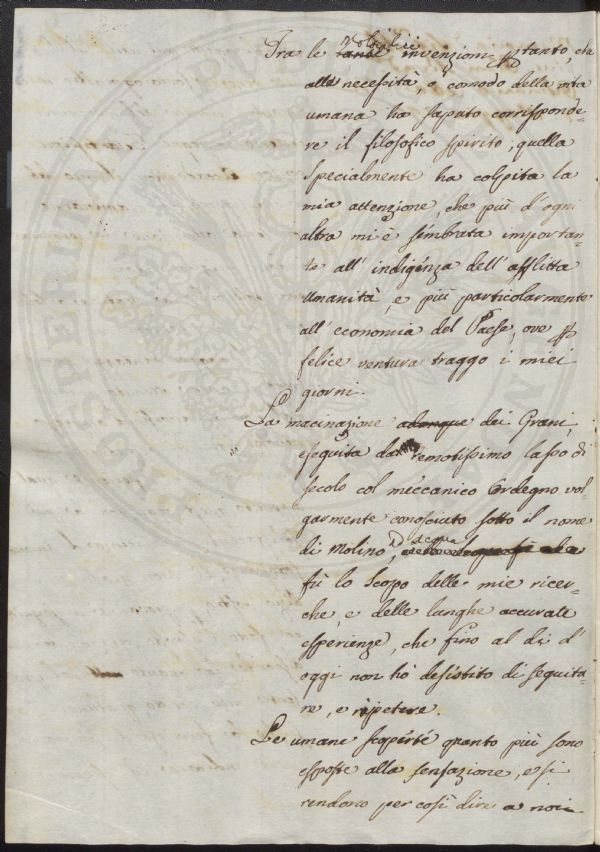 Tra le molteplici invenzioni, tanto, che
alle necessità, o comodo della vita
umana ha saputo corrisponde=
re il filosofico spirito; quella
specialmente ha colpita la
mia attenzione, che più d'ogni
altra mi è simbrata importan=
te all'indigénza dell'afflitta
Umanità, e più particolarmente
all'economia del Paese, ove
felice ventura traggo i miei
giorni.
La macinazione adunque dei Grani,
eseguita dal remotissimo lasso di
secolo col méccanico Ordegno vol=
garmente conosciuto sotto il nome
di Molino, ad acqua
fù lo scopo delle mie ricer=
che, e delle lunghe accurate
esperienze, che fino al dì d'
oggi non hò desistito di seguita=
re, e ripetere.
Le umane scopérté quanto più sono
esposte alla sensazione, e si
rendono per così dire a noi